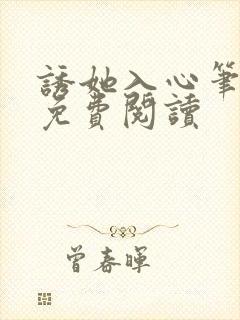 誘她入心筆
免費閱讀
曾春暉